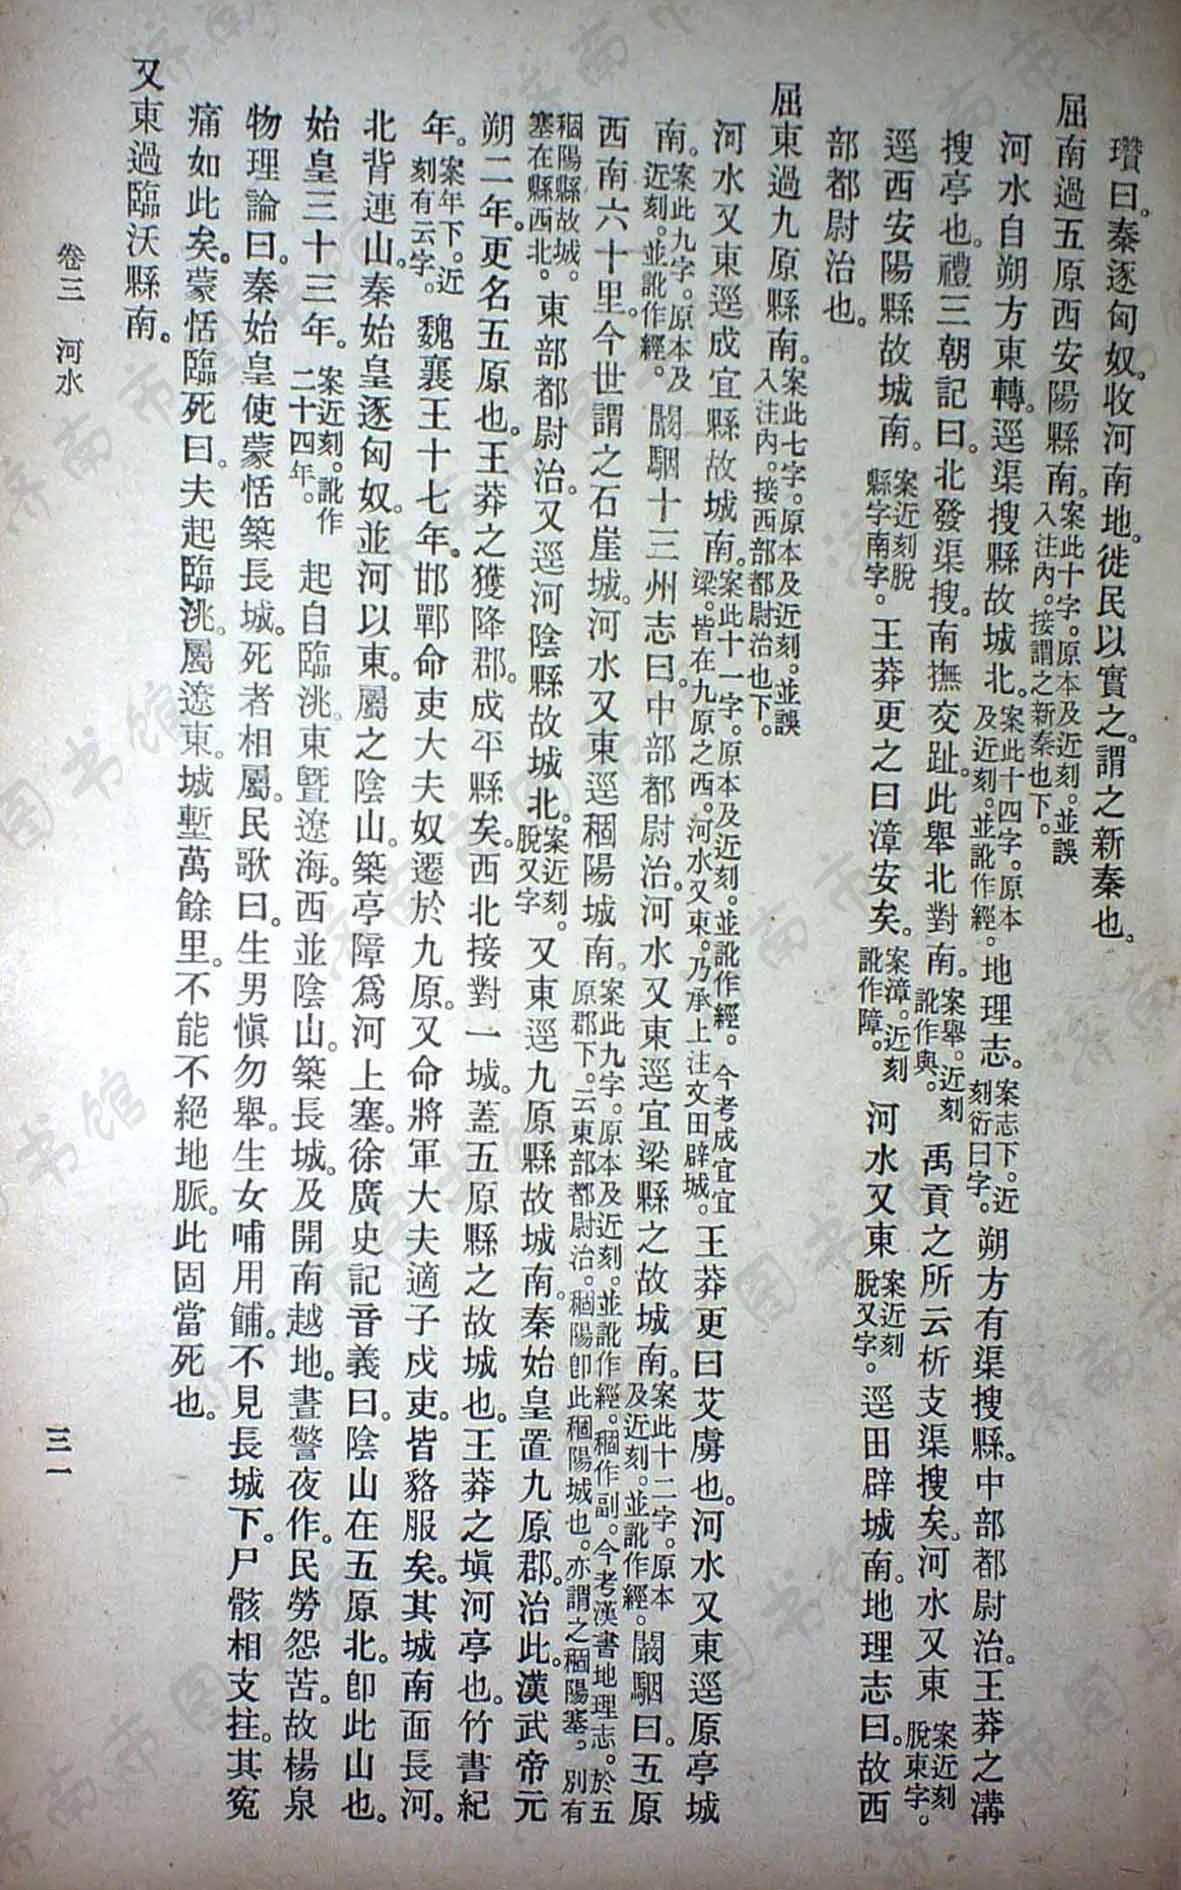 瓚曰。秦逐匈奴。收河南地。徙民以實之。謂之新秦也。
屈南過五原西安陽縣南。案此十字。原本及近刻。並誤入注內。接謂之新秦也下。
河水自朔方東轉。逕渠搜縣故城北。案此十四字。原本及近刻。並訛作經。地理志。案志下。近刻衍曰字。朔方有渠搜縣。中部都尉治。王莽之溝
搜亭也。禮三朝記曰。北發渠搜。南撫交趾。此舉北對南。案舉。近刻訛作與。禹貢之所云析支渠搜矣。河水又東案近刻脫東字。
逕西安陽縣故城南。案近刻脫縣字南字。王莽更之曰漳安矣。案漳。近刻訛作障。河水又東案近刻脫又字。逕田辟城南。地理志曰。故西
部都尉治也。
屈東過九原縣南。案此七字。原本及近刻。並誤入注內。接西部都尉治也下。
河水又東逕成宜縣故城南。案此十一字。原本及近刻。並訛作經。今考成宜宜梁。皆在九原之西。河水又東。乃承上注文田辟城。王莽更曰艾虜也。河水又東逕原亭城
南。案此九字。原本及近刻。並訛作經。闞駰十三州志曰。中部都尉治。河水又東逕宜梁縣之故城南。案此十二字。原本及近刻。並訛作經。闞駰曰。五原
西南六十里。今世謂之石崖城。河水又東逕稒陽城南。案此九字。原本及近刻。並訛作經。稒作副。今考漢書地理志。於五原郡下。云東部都尉治。稒陽卽此稒陽城也。亦謂之稒陽塞。別有
稒陽縣故城。塞在縣西北。東部都尉治。又逕河陰縣故城北。案近刻。脫又字。又東逕九原縣故城南。秦始皇置九原郡。治此。漢武帝元
朔二年。更名五原也。王莽之獲降郡。成平縣矣。西北接對一城。蓋五原縣之故城也。王莽之塡河亭也。竹書紀
年。案年下。近刻有云字。魏襄王十七年。邯鄲命吏大夫奴遷於九原。又命將軍大夫適子戍吏。皆貉服矣。其城南面長河。
北背連山。秦始皇逐匈奴。並河以東。屬之陰山。築亭障爲河上塞。徐廣史記音義曰。陰山在五原北。卽此山也。
始皇三十三年。案近刻。訛作二十四年。起自臨洮。東暨遼海。西並陰山。築長城。及開南越地。晝警夜作。民勞怨苦。故楊泉
物理論曰。秦始皇使蒙恬築長城。死者相屬。民歌曰。生男愼勿舉。生女哺用餔。不見長城下。尸骸相支拄。其冤
痛如此矣。蒙恬臨死曰。夫起臨洮。屬遼東。城塹萬餘里。不能不絕地脈。此固當死也。
又東過臨沃縣南。
卷三 河水
三一